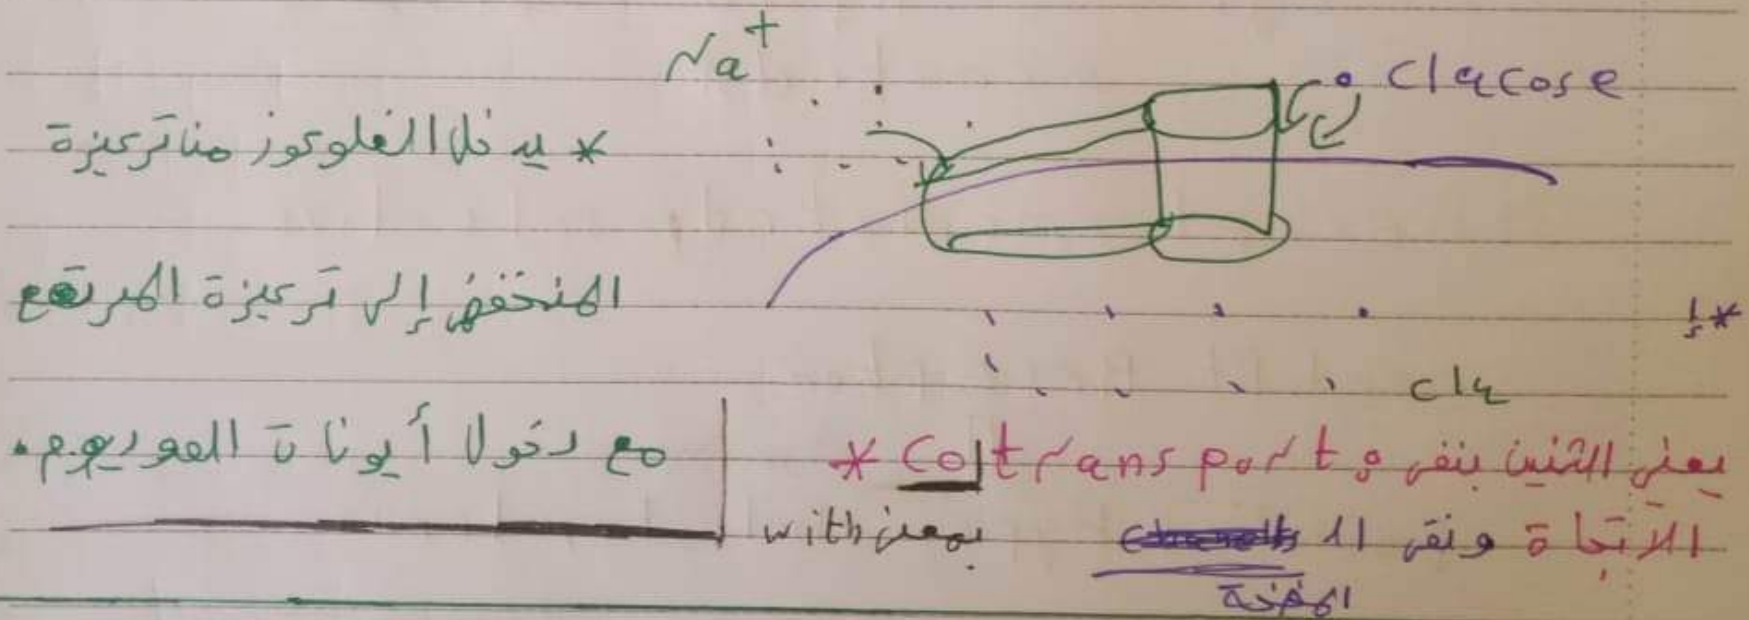 Na+
Glucose
* يدخل الغلوكوز من تركيزة
المنخفض إلى تركيزة المرتفع
مع دخول أيونات الصوديوم.
*إ
Glu
* Cotransport يعني اثنين بنفس
الاتجاة ونفس ال
المضخة
بمعنى with